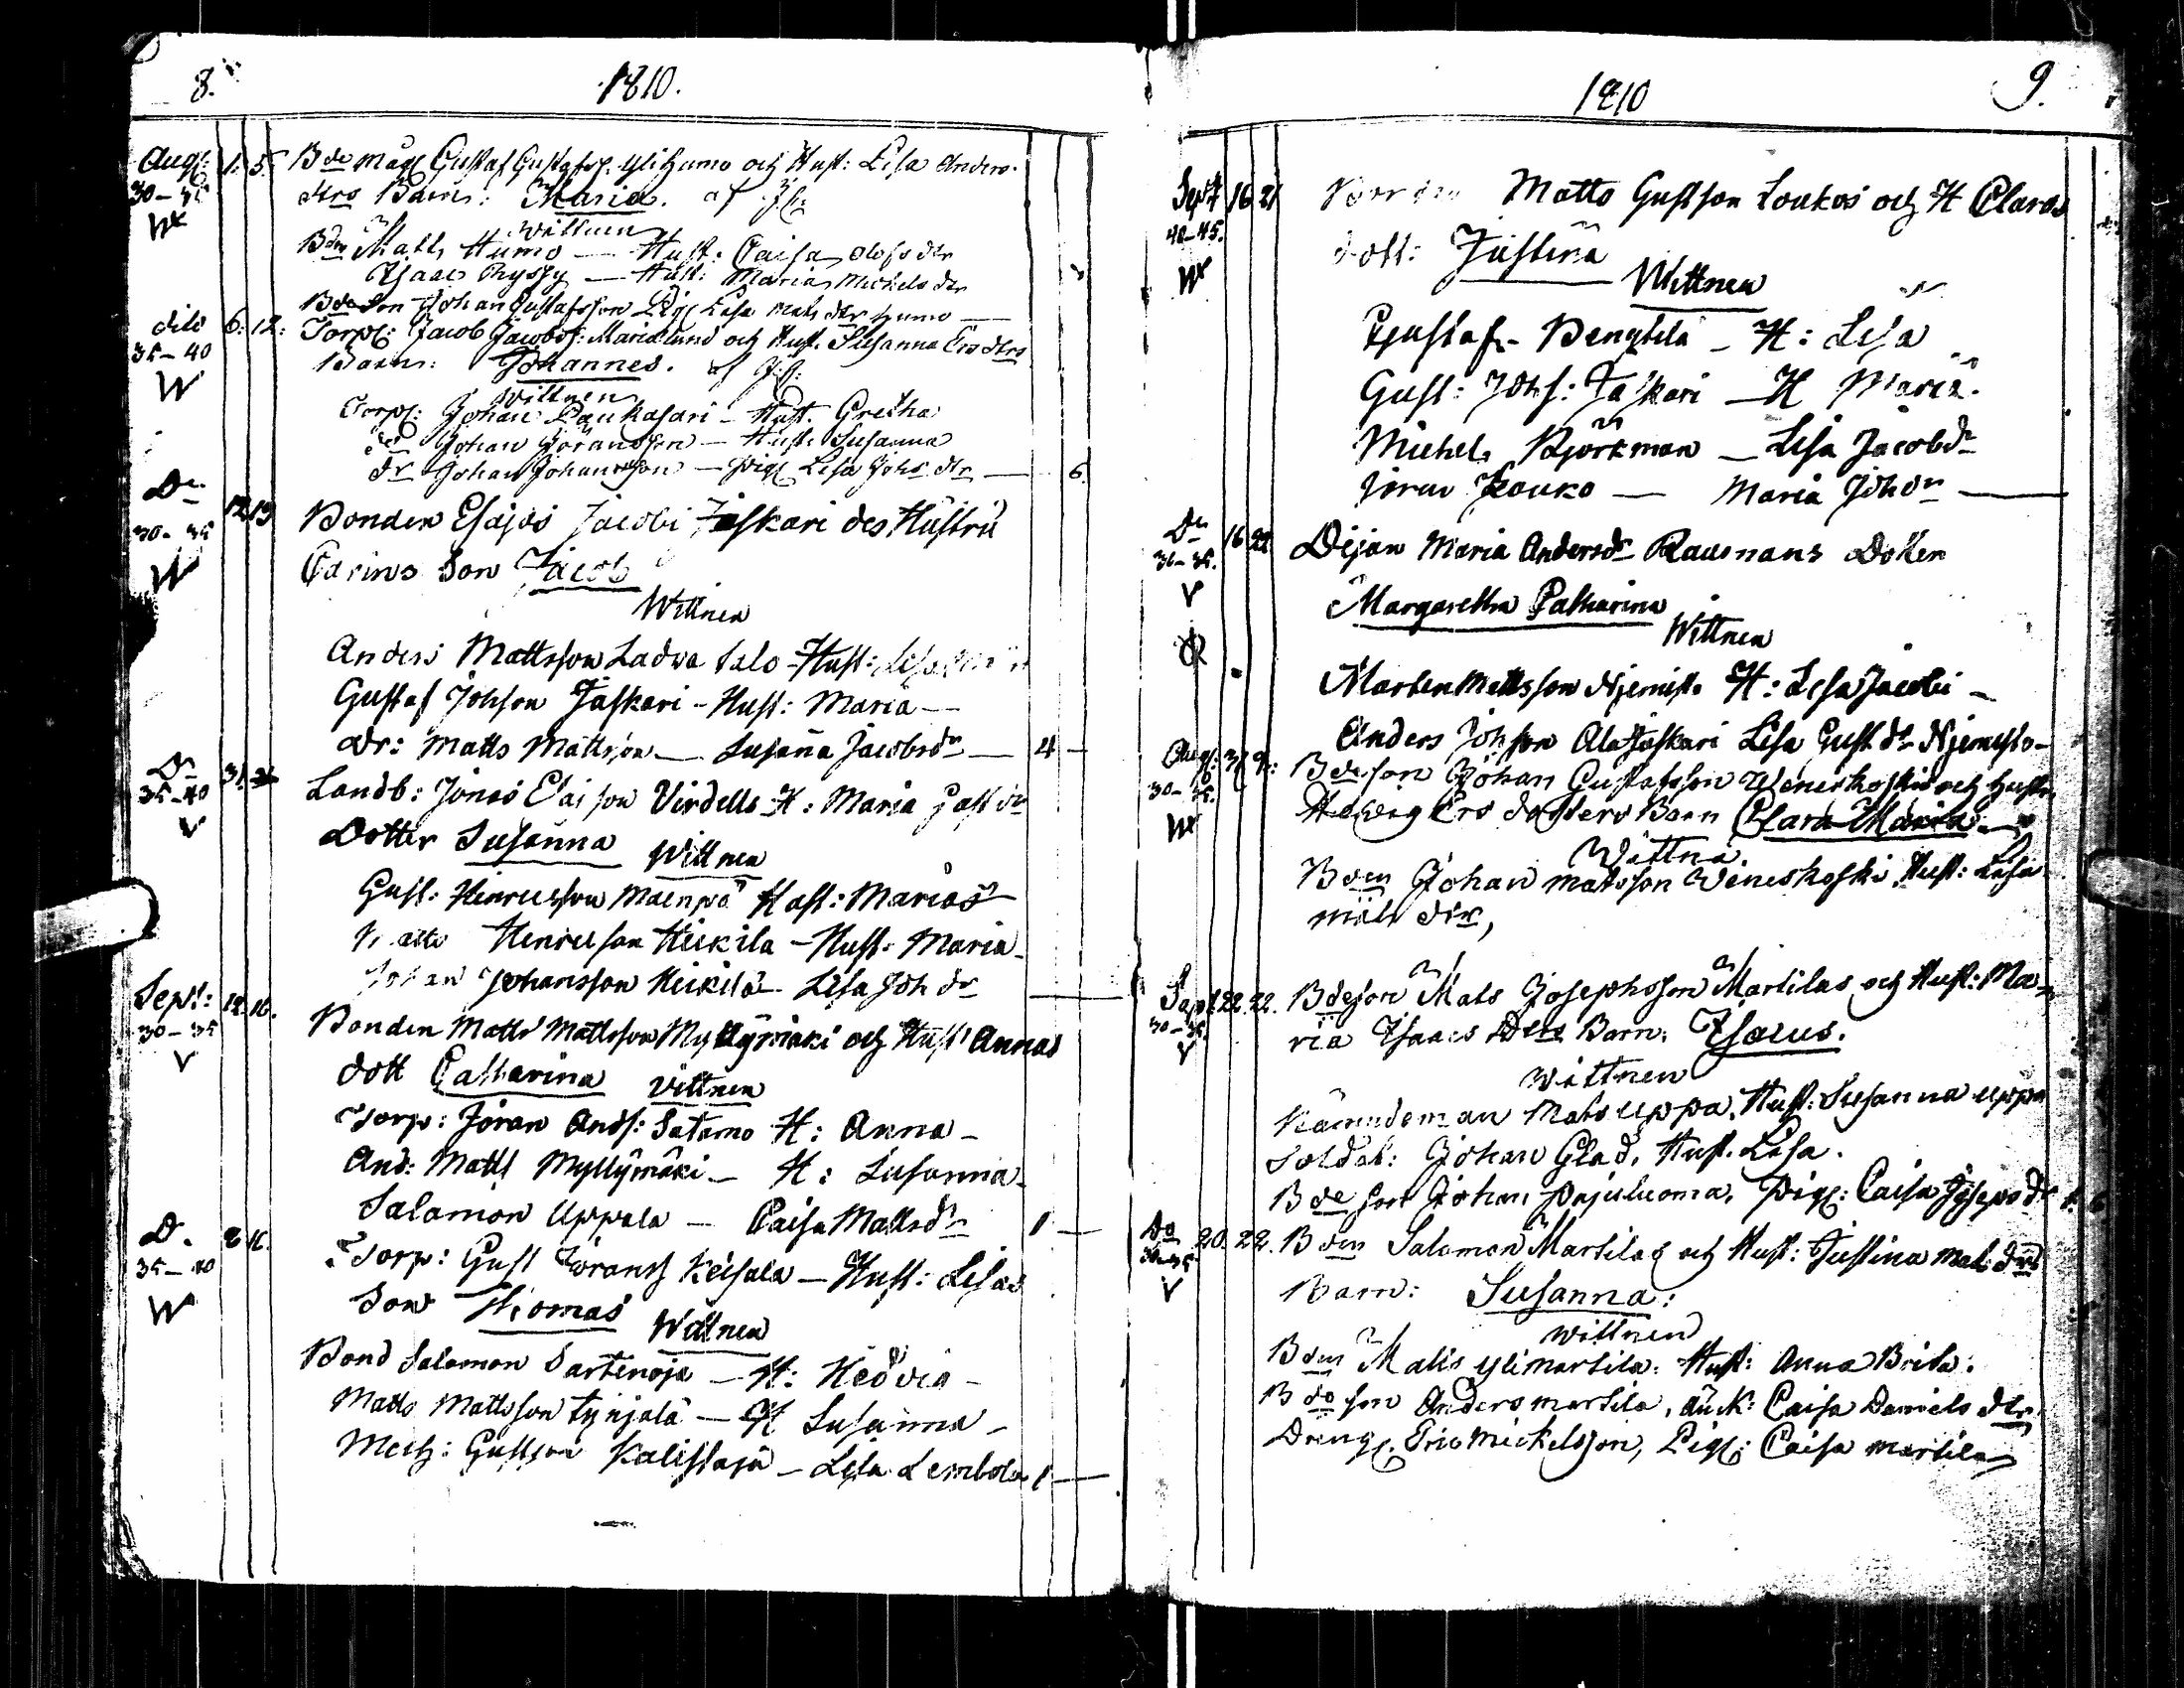 8.
1810.
Aug: 1. 5. Bde mågs Gustaf Gustafss. Ylihumo och Hust: Lisa Anders
30-35 dtrs Barn: Maria. af
W Wittnen
Bdn Matts Humo — Hust: Caisa Olofs dtr
Isaac Ryssy — Hust: Maria Michels dtr
Bde Son Johan Gustafsson Pig: Lisa Mats dtr Humo —
dito 6. 12. Torp: Jacob Jacobss: Marielund och Hust. Susanna Ers dtrs
35-40 Barn: Johannes. af
W Wittnen
Torp: Johan Paukasari - Hust. Gretha
do Johan Göransson - Hust. Susanna
dr Johan Johansson - Pig: Lisa Johs dtr — 6.
Do 12 13 Bonden Esajas Jacobi Jaskari des Hustru
30-35 Carins Son Jacob
W Wittnen
Anders Mattsson Ladvatalo - Hust: Lisa
Gustaf Johsson Jaskari - Hust: Maria —
Dr: Matts Mattsson — Susanna Jacobsdr — 4 —
Do 31. Landb: Jonas Elaisson Virdells H: Maria Gust dr
35-40 Dotter Susanna Wittnen
V
Gust: Henricsson Maenpä Hust: Marias
Matts Henricson Heikila - Hust: Maria
Johan Johansson Heikilä - Lisa Joh dr
Sept: 12. 16. Bonden Matts Mattsson Myllymäki och Hust Annas
30-35 dott Catharina Vittnen
V
Torp: Jöran Ands: Satamo H: Anna -
And: Matts Myllymäki - H: Susanna
Salamon Uppala — Caisa Mattsdr 1 —
D. 8 16. Torp: Gust Göranss Keisala - Hust: Lisas
35-40 Son Thomas Wittnen
W
Bond Salomon Sartenoja - H: Hedvig -
Matts Mattsson Tynjälä - H Susanna -
Mats: Gustsson Kalistaja - Lisa Lembola 1 —
1810
9.
Sept 16 21 Matts Gustson Loukos och H Claras
40-45. dott: Justina
W Wittnen
Gustaf Pengbila - H: Lisa
Gust: Johs: Jaskari - H Maria.
Michel Björkman - Lisa Jacobdr
Jöran Kouko — Maria Johdr —
Do 16 22 Pigan Maria Andersdr Rausmans Dotter
30-35. Margaretha Catharina
V Wittnen
Morten Mattsson Njemistö H: Lisa Jacobi -
Anders Johsson Alajaskari Lisa Gust dr Njemistö -
Aug: 31 9: Bde son Johan Gustafsson Weneskoski och Hustr.
30-35. Hedvig Ers dotters Barn Clara Maria.
W Wittna.
Bden Johan Matsson Weneskoski, Hust: Lisa
Mats dtr,
Sept. 22. 22. Bdeson Mats Josephsson Martilas och Hust: Ma-
30-35. ria Isaacs Dtrs Barn: Isacus.
V Wittnen
Nämndeman Mats Uppa, Hust: Susanna Uppa
Soldat: Johan Glad, Hust. Lisa.
Bde son Johan Pajuluoma, Pig: Caisa Joseps dr 1. 6
Do 20. 22. Bden Salomon Martilas och Hust: Justina Mats dtrs
30-35 Barn: Susanna:
V Wittnen
Bden Matts Ylimartila. Hust: Anna Brita.
Bde son Anders Martila, Änk: Caisa Daniels dtr.
Dreng. Eric Mickelsson, Pig: Caisa Martila